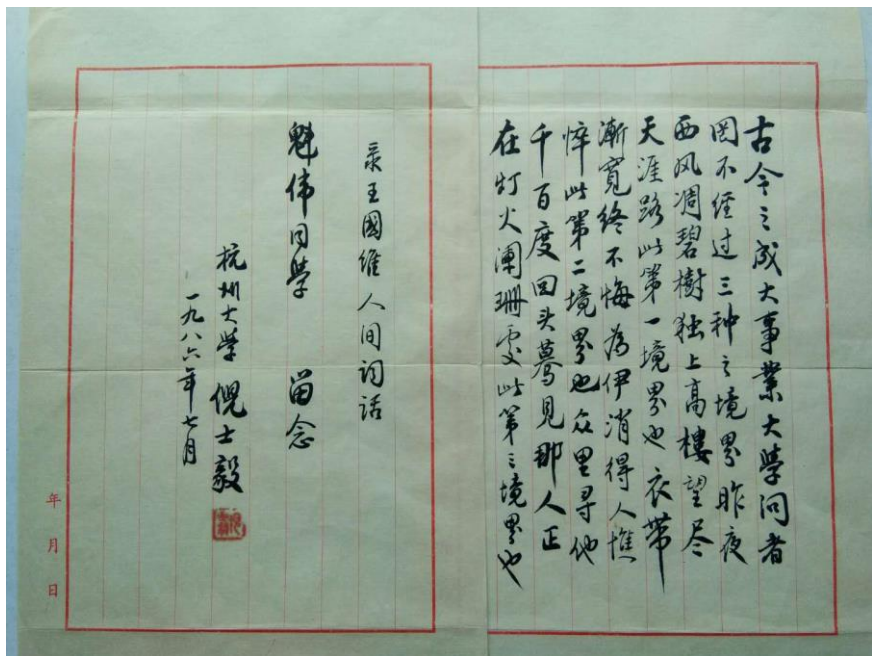 古今之成大事业大学问者
罔不经过三种之境界昨夜
西风凋碧樹独上高楼望尽
天涯路此第一境界也衣带
渐宽终不悔为伊消得人憔
悴此第二境界也众里寻他
千百度回头蓦见那人正
在灯火阑珊处此第三境界也
录王國维人间词话
魁伟同学 留念
杭州大学 倪士毅
一九八六年七月
年月日